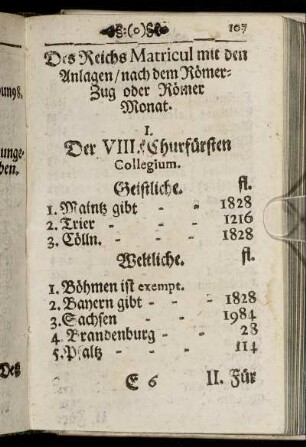 :(o): 107
Des Reichs Matricul mit den
Anlagen/nach dem Römer-
Zug oder Römer
Monat.
I.
Der VIII. Churfürsten
Collegium.
Geistliche. fl.
1. Maintz gibt - - 1828
2. Trier - - - 1216
3. Cölln. - - - 1828
Weltliche. fl.
1. Böhmen ist exempt.
2. Bayern gibt - - 1828
3. Sachsen - - 1984
4. Brandenburg - - 28
5. Pfaltz - - - 114
E 6 II. Für